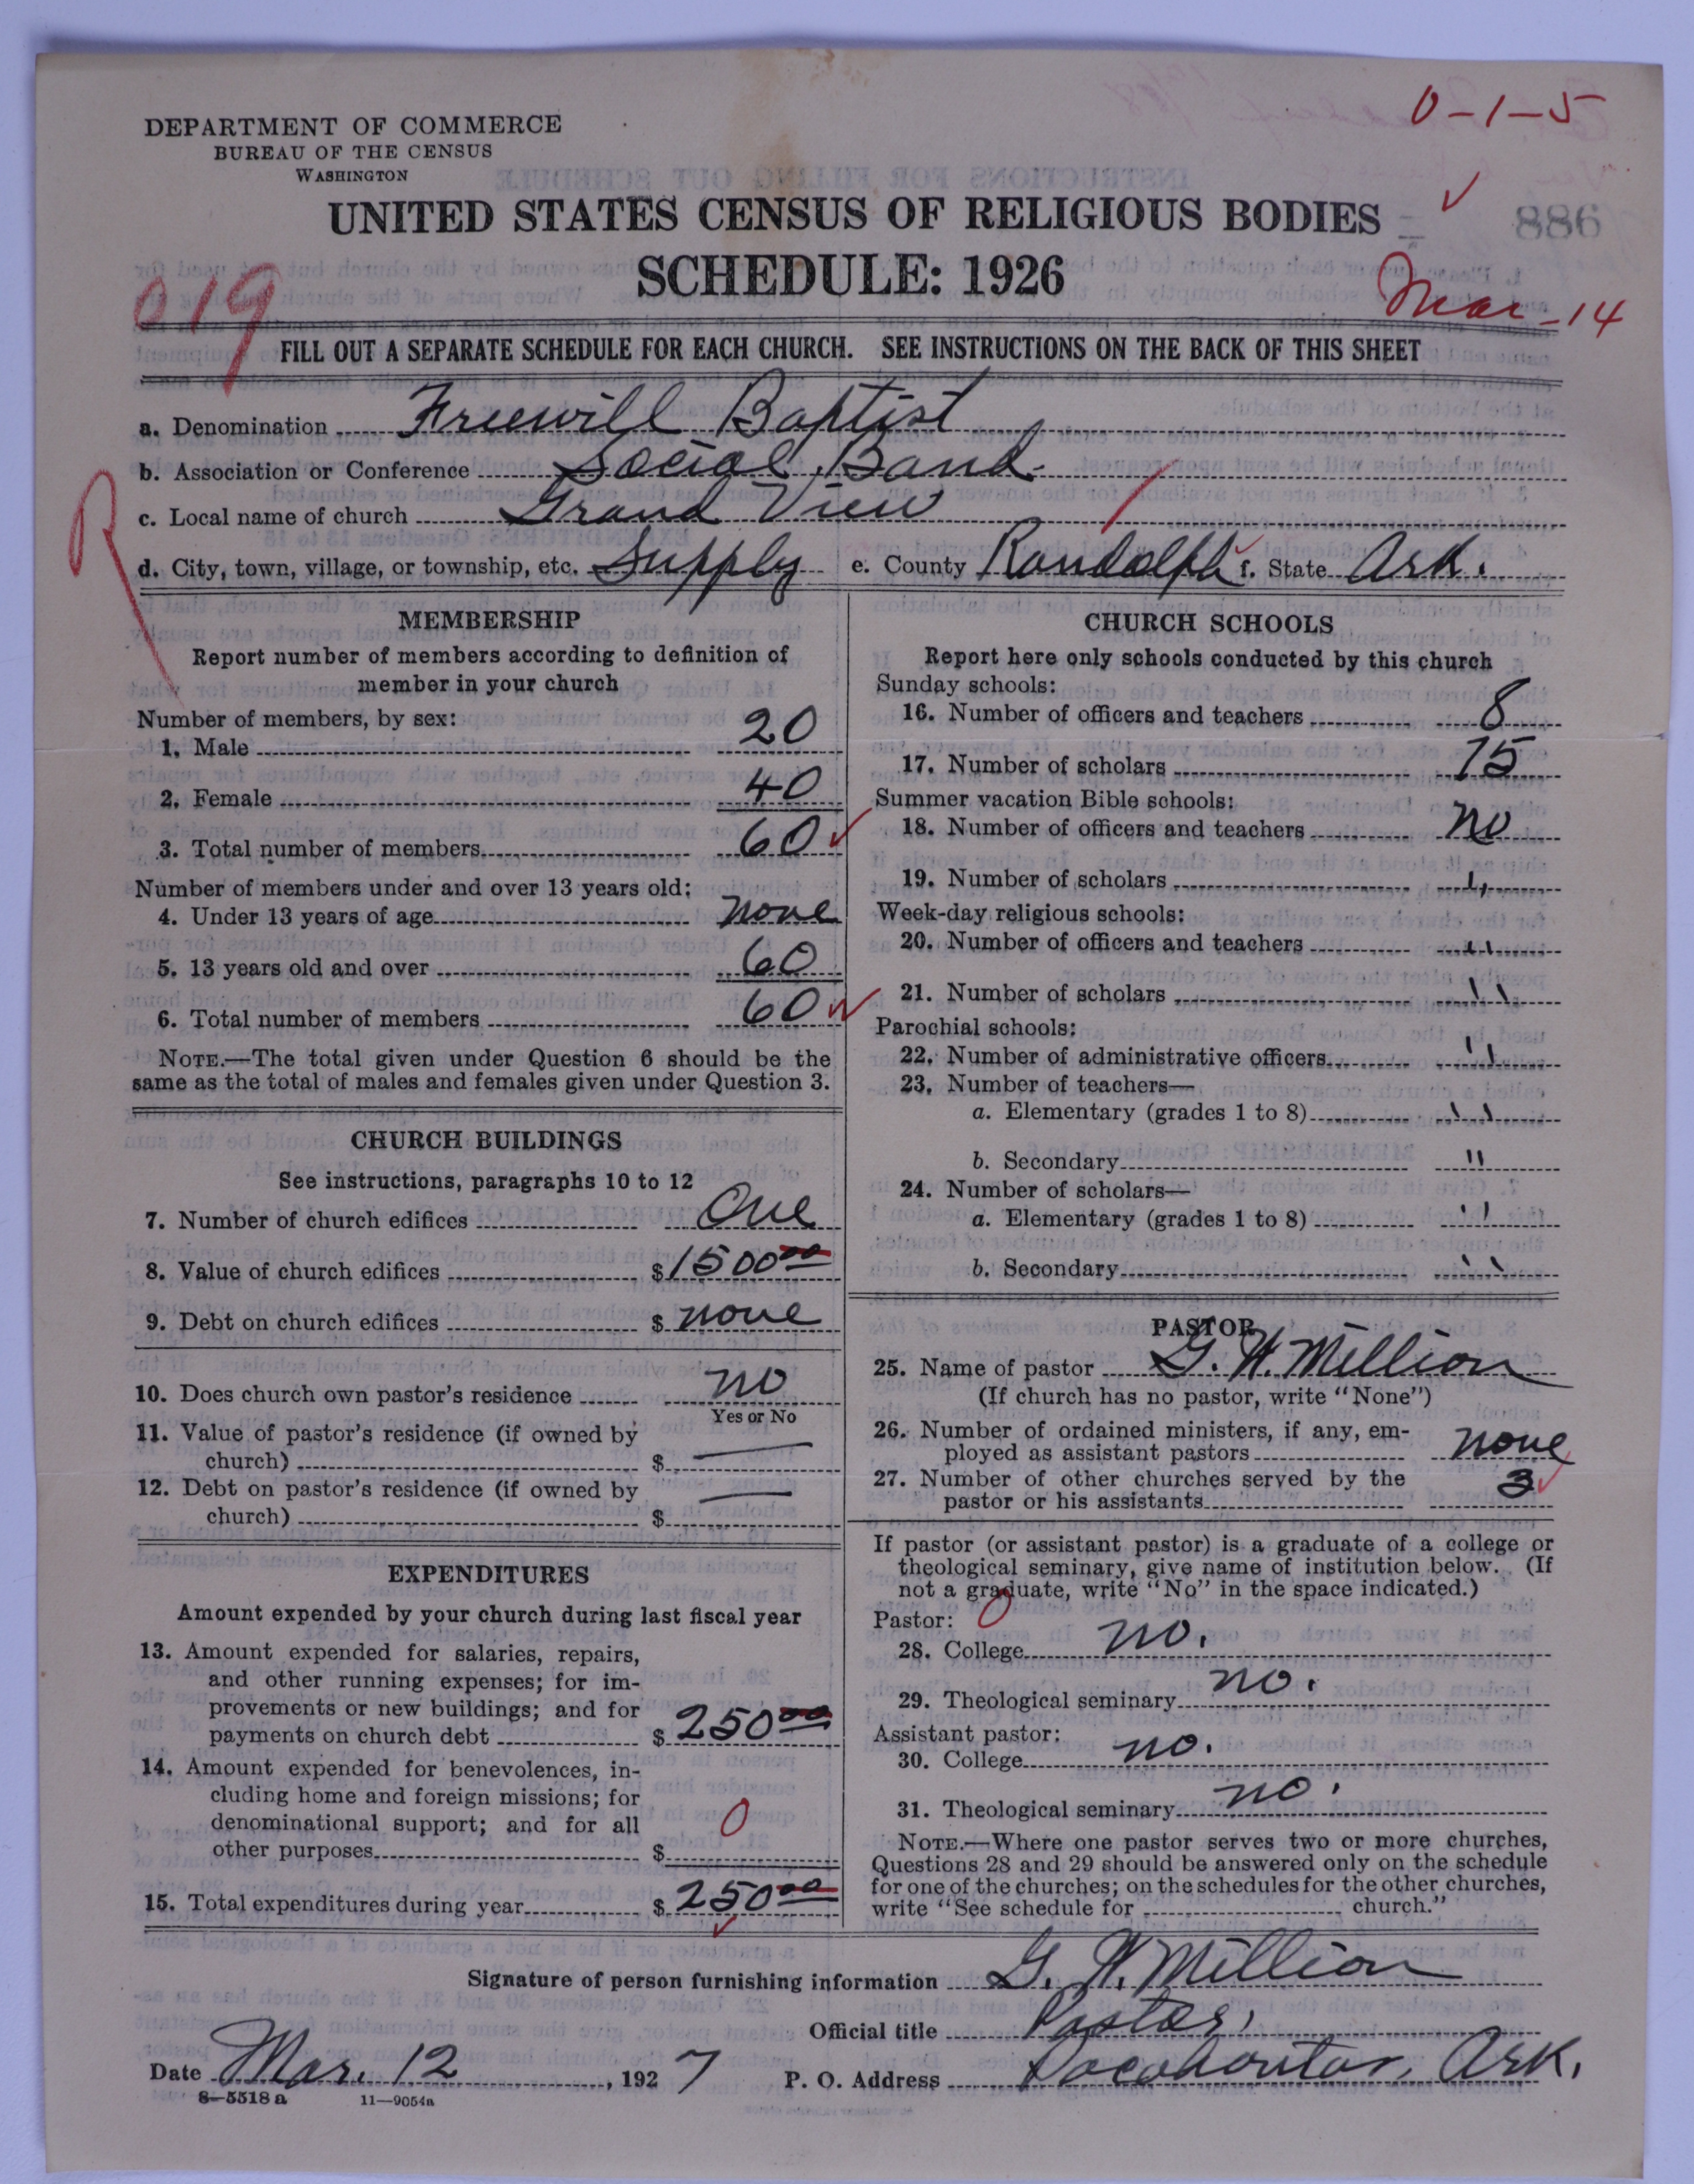 0-1-5
DEPARTMENT OF COMMERCE
BUREAU OF THE CENSUS
WASHINGTON
UNITED STATES CENSUS OF RELIGIOUS BODIES
886
SCHEDULE: 1926
019
Mar-14
FILL OUT A SEPARATE SCHEDULE FOR EACH CHURCH. SEE INSTRUCTIONS ON THE BACK OF THIS SHEET
a. Denomination Freewill Baptist
b. Association or Conference Social Band
c. Local name of church Grand View
d. City, town, village, or township, etc. Supply e. County Randolph f. State Ark.
R
MEMBERSHIP
Report number of members according to definition of
member in your church
Number of members, by sex:
1. Male 20
2. Female 40
3. Total number of members 60
Number of members under and over 13 years old:
4. Under 13 years of age none
5. 13 years old and over 60
6. Total number of members 60
NOTE.—The total given under Question 6 should be the
same as the total of males and females given under Question 3.
CHURCH BUILDINGS
See instructions, paragraphs 10 to 12
7. Number of church edifices One
8. Value of church edifices $1500 00
9. Debt on church edifices $ none
10. Does church own pastor's residence no
Yes or No
11. Value of pastor's residence (if owned by
church) $ —
12. Debt on pastor's residence (if owned by
church) $ —
EXPENDITURES
Amount expended by your church during last fiscal year
13. Amount expended for salaries, repairs,
and other running expenses; for im-
provements or new buildings; and for
payments on church debt $ 250 00
14. Amount expended for benevolences, in-
cluding home and foreign missions; for
denominational support; and for all
other purposes $ 0
15. Total expenditures during year $ 250 00
CHURCH SCHOOLS
Report here only schools conducted by this church
Sunday schools:
16. Number of officers and teachers 8
17. Number of scholars 75
Summer vacation Bible schools:
18. Number of officers and teachers no
19. Number of scholars "
Week-day religious schools:
20. Number of officers and teachers "
21. Number of scholars "
Parochial schools:
22. Number of administrative officers "
23. Number of teachers—
a. Elementary (grades 1 to 8) "
b. Secondary "
24. Number of scholars—
a. Elementary (grades 1 to 8) "
b. Secondary "
PASTOR
25. Name of pastor G. W. Million
(If church has no pastor, write "None")
26. Number of ordained ministers, if any, em-
ployed as assistant pastors none
27. Number of other churches served by the
pastor or his assistants 3
If pastor (or assistant pastor) is a graduate of a college or
theological seminary, give name of institution below. (If
not a graduate, write "No" in the space indicated.)
Pastor: 0
28. College no.
29. Theological seminary no.
Assistant pastor:
30. College no.
31. Theological seminary no.
NOTE.—Where one pastor serves two or more churches,
Questions 28 and 29 should be answered only on the schedule
for one of the churches; on the schedules for the other churches,
write "See schedule for church."
Signature of person furnishing information G. W. Million
Official title Pastor,
Date Mar. 12, 1927 P. O. Address Pocahontas, Ark.
8—5518 a 11—9054a